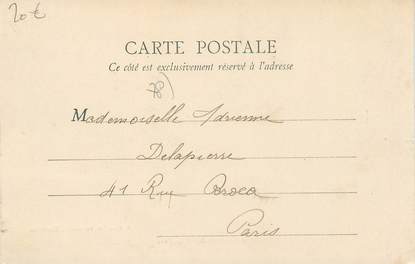 20 €
CARTE POSTALE
Ce côté est exclusivement réservé à l'adresse
78)
Mademoiselle Adrienne
Delapierre
41 Rue Broca
Paris